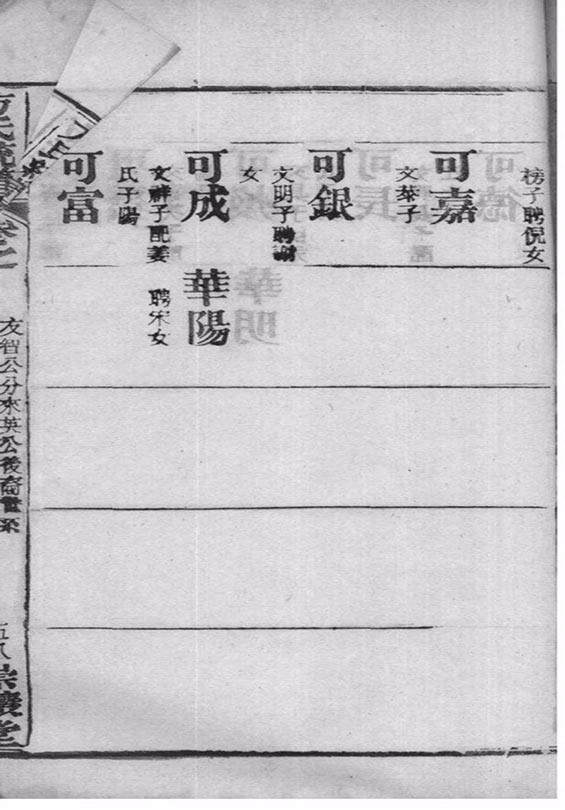 榜子聘倪女
可嘉
文葉子
可銀
文明子聘謝
女
可成
文祥子配姜
氏子陽
華陽
聘宋女
可富
友智公分來英公後裔世系
五八